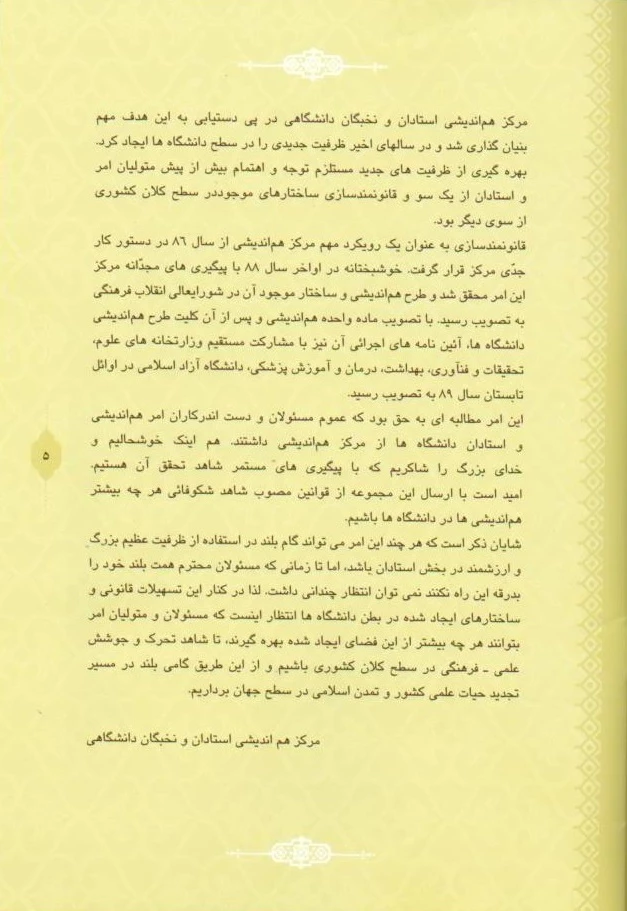 مرکز هم‌اندیشی استادان و نخبگان دانشگاهی در پی دستیابی به این هدف مهم
بنیان گذاری شد و در سالهای اخیر ظرفیت جدیدی را در سطح دانشگاه ها ایجاد کرد.
بهره گیری از ظرفیت های جدید مستلزم توجه و اهتمام بیش از پیش متولیان امر
و استادان از یک سو و قانونمندسازی ساختارهای موجوددر سطح کلان کشوری
از سوی دیگر بود.
قانونمندسازی به عنوان یک رویکرد مهم مرکز هم‌اندیشی از سال ۸۶ در دستور کار
جدّی مرکز قرار گرفت. خوشبختانه در اواخر سال ۸۸ با پیگیری های مجدّانه مرکز
این امر محقق شد و طرح هم‌اندیشی و ساختار موجود آن در شورایعالی انقلاب فرهنگی
به تصویب رسید. با تصویب ماده واحده هم‌اندیشی و پس از آن کلیت طرح هم‌اندیشی
دانشگاه ها، آئین نامه های اجرائی آن نیز با مشارکت مستقیم وزارتخانه های علوم،
تحقیقات و فنآوری، بهداشت، درمان و آموزش پزشکی، دانشگاه آزاد اسلامی در اوائل
تابستان سال ۸۹ به تصویب رسید.
این امر مطالبه ای به حق بود که عموم مسئولان و دست اندرکاران امر هم‌اندیشی
و استادان دانشگاه ها از مرکز هم‌اندیشی داشتند. هم اینک خوشحالیم و
خدای بزرگ را شاکریم که با پیگیری های مستمر شاهد تحقق آن هستیم.
امید است با ارسال این مجموعه از قوانین مصوب شاهد شکوفائی هر چه بیشتر
هم‌اندیشی ها در دانشگاه ها باشیم.
شایان ذکر است که هر چند این امر می تواند گام بلند در استفاده از ظرفیت عظیم بزرگ
و ارزشمند در بخش استادان باشد، اما تا زمانی که مسئولان محترم همت بلند خود را
بدرقه این راه نکنند نمی توان انتظار چندانی داشت. لذا در کنار این تسهیلات قانونی و
ساختارهای ایجاد شده در بطن دانشگاه ها انتظار اینست که مسئولان و متولیان امر
بتوانند هر چه بیشتر از این فضای ایجاد شده بهره گیرند، تا شاهد تحرک و جوشش
علمی ـ فرهنگی در سطح کلان کشوری باشیم و از این طریق گامی بلند در مسیر
تجدید حیات علمی کشور و تمدن اسلامی در سطح جهان برداریم.
مرکز هم اندیشی استادان و نخبگان دانشگاهی
۵